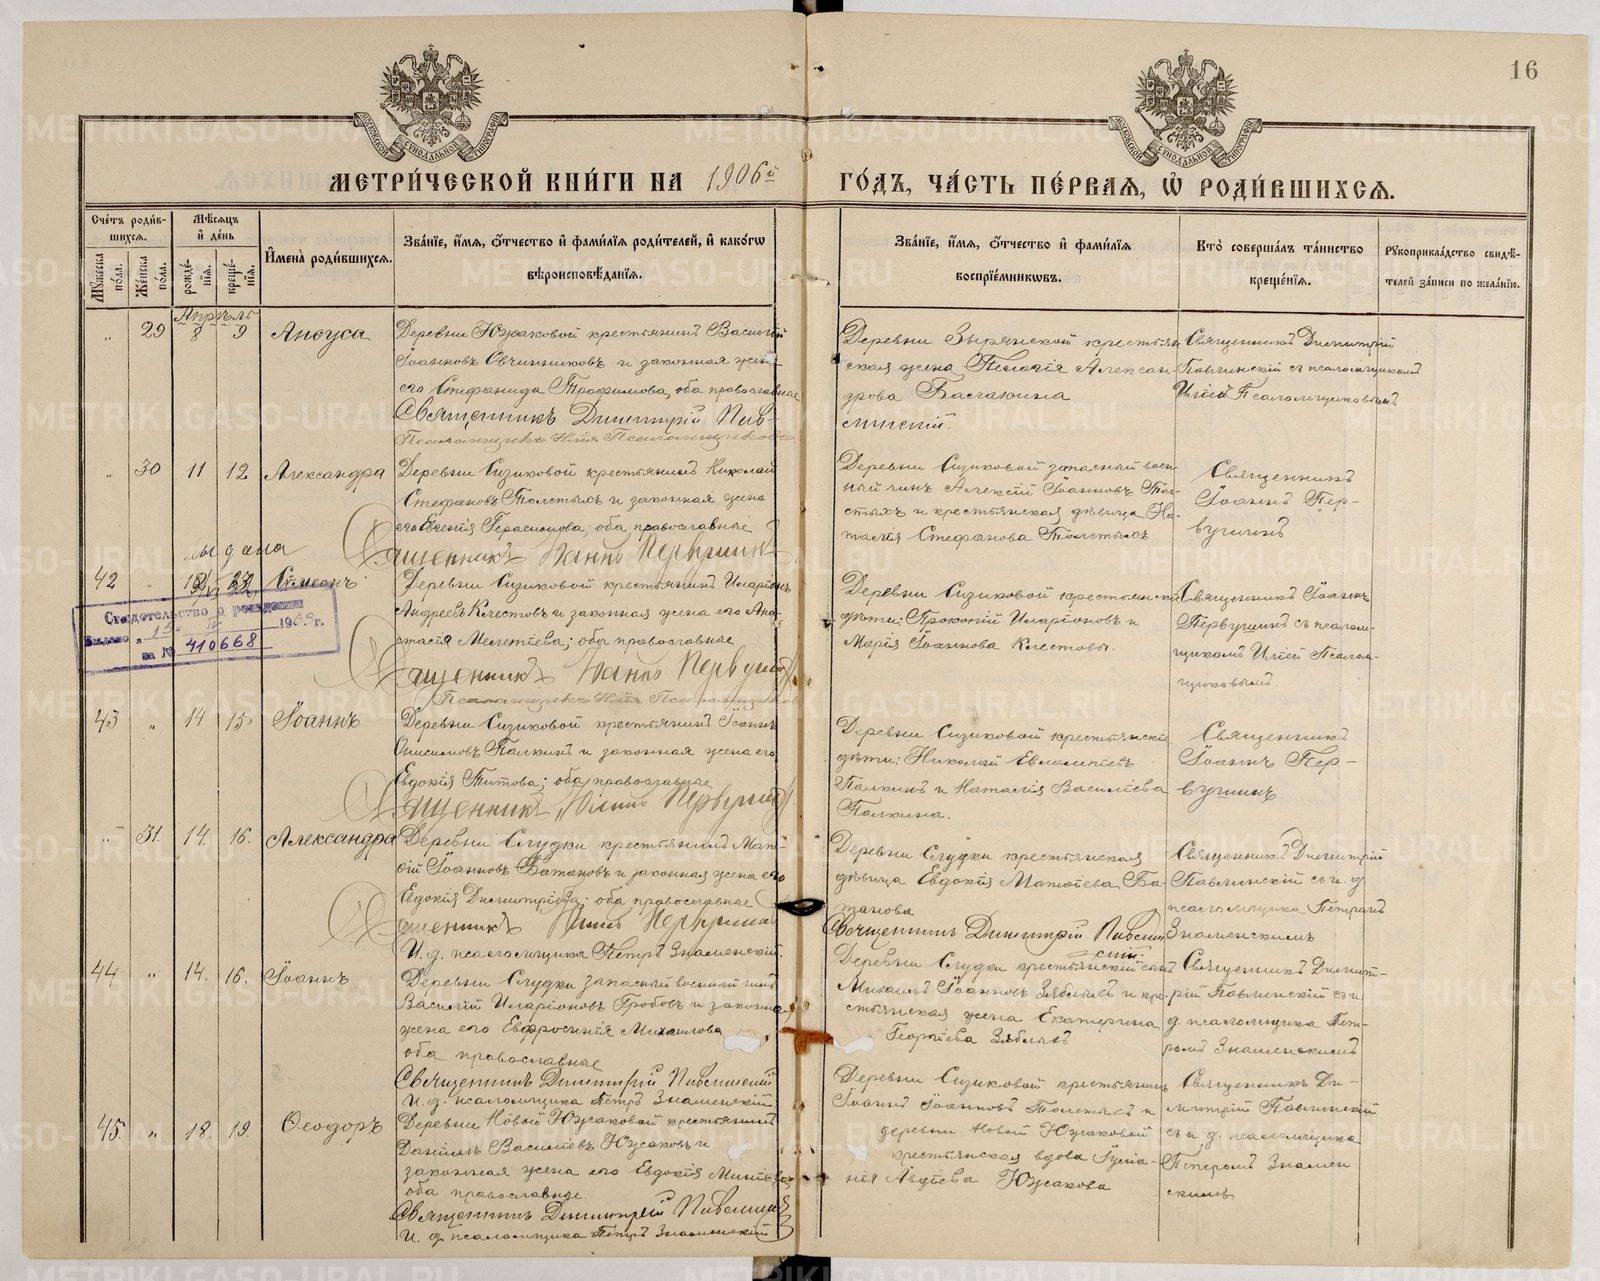 16
МОСКОВСКОЙ СѴНОДАЛЬНОЙ ТИПОГРАФІИ
МОСКОВСКОЙ СѴНОДАЛЬНОЙ ТИПОГРАФІИ
МЕТРИ́ЧЕСКОЙ КНИ́ГИ НА 1906й ГО́ДЪ, ЧА́СТЬ ПЕ́РВАѦ, Ѽ РОДИ́ВШИХСѦ.
Сче́тъ роди́в-
шихсѧ.
Мꙋ́жеска по́ла.
Же́нска по́ла.
Мѣ́сѧцъ
и҆ де́нь
рожде́-
нїѧ.
креще́-
нїѧ.
И҆мена̀ роди́вшихсѧ.
Зва́нїе, и҆́мѧ, ѻ҆́тчество и҆ фами́лїѧ роди́телей, и҆ како́гѡ
вѣроисповѣ́данїѧ.
Зва́нїе, и҆́мѧ, ѻ҆́тчество и҆ фами́лїѧ
воспрїе́мникѡвъ.
Кто̀ соверша́лъ та́инство
креще́нїѧ.
Рꙋкоприкла́дство свидѣ́-
телей за́писи по жела́нїю.
Апрѣль
„ 29 8 9 Анѳуса
Деревни Южаковой крестьянинъ Василій
Іоанновъ Овчинниковъ и законная жена
его Стефанида Трофимова, оба православные
Священникъ Димитрій Пав-
Псаломщикъ Илія Псаломщиковъ
Деревни Зырянской крестьян-
ская жена Пелагія Алексан-
дрова
линскій.
Священникъ Димитрій
Павлинскій съ псаломщикомъ
Иліей Псаломщиковымъ
„ 30 11 12 Александра
Деревни Сизиковой крестьянинъ Николай
Стефановъ Толстыхъ и законная жена
его Евгенія Герасимова; оба православные
Священникъ Іоаннъ Первушинъ
Деревни Сизиковой запасный воен-
ный чинъ Алексій Іоанновъ Тол-
стыхъ и крестьянская дѣвица На-
талія Стефанова Толстыхъ
Священникъ
Іоаннъ Пер-
вушинъ
42 „ Симеонъ
Деревни Сизиковой крестьянинъ Иларіонъ
Андреевъ Клестовъ и законная жена его Ана-
стасія Мелетіева; оба православные
Священникъ Іоаннъ Первушинъ
Псаломщикъ Илія Псаломщиковъ
Деревни Сизиковой крестьянскіе
дѣти: Прокопій Иларіоновъ и
Марія Іоаннова Клестовы.
Священникъ Іоаннъ
Первушинъ съ псалом-
щикомъ Иліей Псалом-
щиковымъ
Свидетельство о рождении
Выдано
на № 410668
43 „ 14 15 Іоаннъ
Деревни Сизиковой крестьянинъ Іоаннъ
Онисимовъ Палкинъ и законная жена его
Евдокія Титова; оба православные
Священникъ Іоаннъ Первушинъ
Деревни Сизиковой крестьянскіе
дѣти: Николай Евлампіевъ
Палкинъ и Наталія Василіева
Палкина.
Священникъ
Іоаннъ Пер-
вушинъ.
„ 31. 14. 16. Александра
Деревни Слудки крестьянинъ Мат-
ѳій Іоанновъ Батановъ и законная жена его
Евдокія Димитріева; оба православные
Священникъ Іоаннъ Первушинъ
И. д. псаломщика Петръ Знаменскій.
Деревни Слудки крестьянская
дѣвица Евдокія Матѳіева Ба-
танова
Священникъ Димитрій Павлин-
скій.
Священникъ Димитрій
Павлинскій съ и. д.
псаломщика Петромъ
Знаменскимъ
44 „ 14. 16. Іоаннъ
Деревни Слудки запасный военный чинъ
Василій Иларіоновъ Гробовъ и законная
жена его Евфросинія Михаилова
оба православные
Священникъ Димитрій Павлинскій
И. д. псаломщика Петръ Знаменскій
Деревни Слудки крестьянскій сынъ
Михаилъ Іоанновъ Зяблыхъ и кре-
стьянская жена Екатерина
Георгіева Зяблыхъ
Священникъ Димит-
рій Павлинскій съ и.
д. псаломщика Пет-
ромъ Знаменскимъ
45. „ 18. 19. Ѳеодоръ
Деревни Новой Южаковой крестьянинъ
Даніилъ Василіевъ Южаковъ и
законная жена его Евдокія
оба православные
Священникъ Димитрій Павлинскій
И. д. псаломщика Петръ Знаменскій
Деревни Сизиковой крестьянинъ
Іоаннъ Іоанновъ Толстыхъ и
деревни Новой Южаковой
крестьянская вдова Іуліа-
нія Авдіева Южакова
Священникъ Ди-
митрій Павлинскій
съ и. д. псаломщика
Петромъ Знамен
скимъ
METRIKI.GASO-URAL.RU